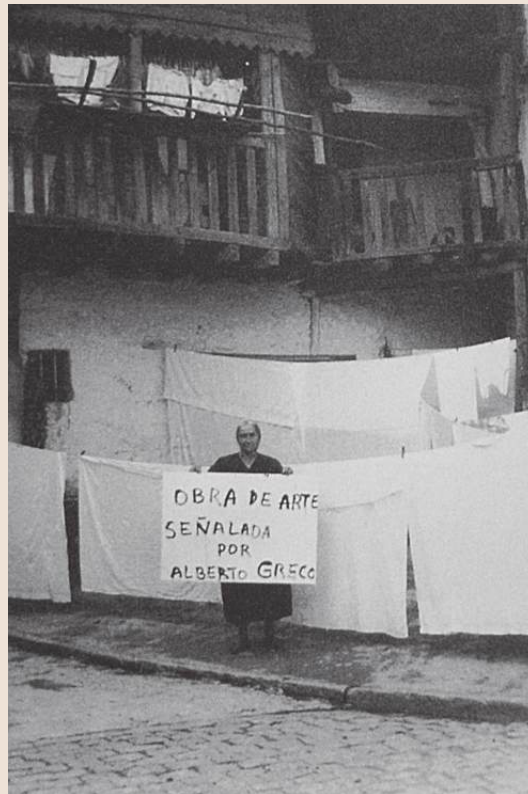 OBRA DE ARTE
SEÑALADA
POR
ALBERTO GRECO